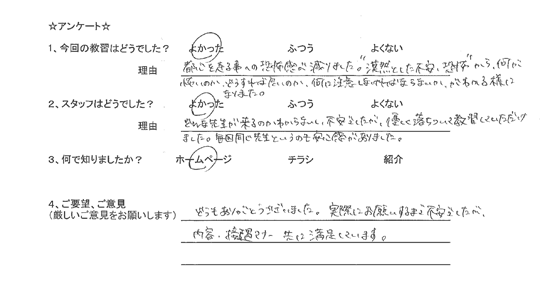 ☆アンケート☆
1、今回の教習はどうでした？ よかった ふつう よくない
理由 都心を走る事への恐怖感が減りました。"漠然とした不安、恐怖"から、何が
怖いのか、どうすれば良いのか、何に注意しなければならないか、がわかる様に
なりました。
2、スタッフはどうでした？ よかった ふつう よくない
理由 どんな先生が来るのかわからないし、不安でしたが、優しく落ちついて教習していただけ
ました。毎回同じ先生というのも安心感がありました。
3、何で知りましたか？ ホームページ チラシ 紹介
4、ご要望、ご意見
（厳しいご意見をお願いします）
どうもありがとうございました。実際にお願いするまで不安でしたが、
内容・接遇マナー 共に満足しています。